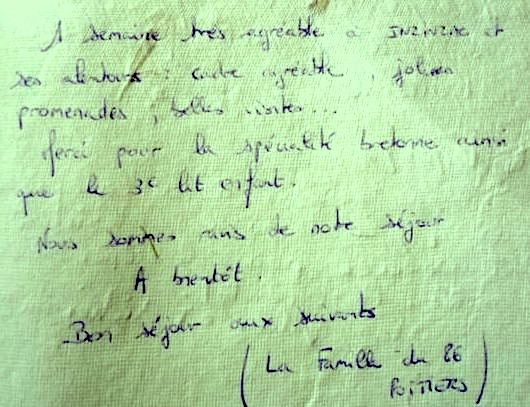 1 semaine très agréable à INZINZAC et
ses alentours : cadre agréable, jolies
promenades, belles visites...
Merci pour la spécialité bretonne ainsi
que le 3e lit enfant.
Nous sommes ravis de notre séjour
A bientôt.
Bon séjour aux suivants
(La Famille du 86
POITIERS)